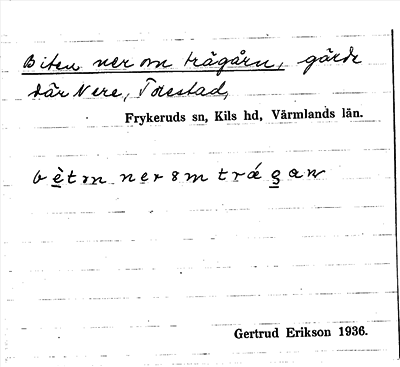 Biten ner om trägårn, gärde
där Nere, Torestad,
Frykeruds sn, Kils hd, Värmlands län.
Gertrud Erikson 1936.